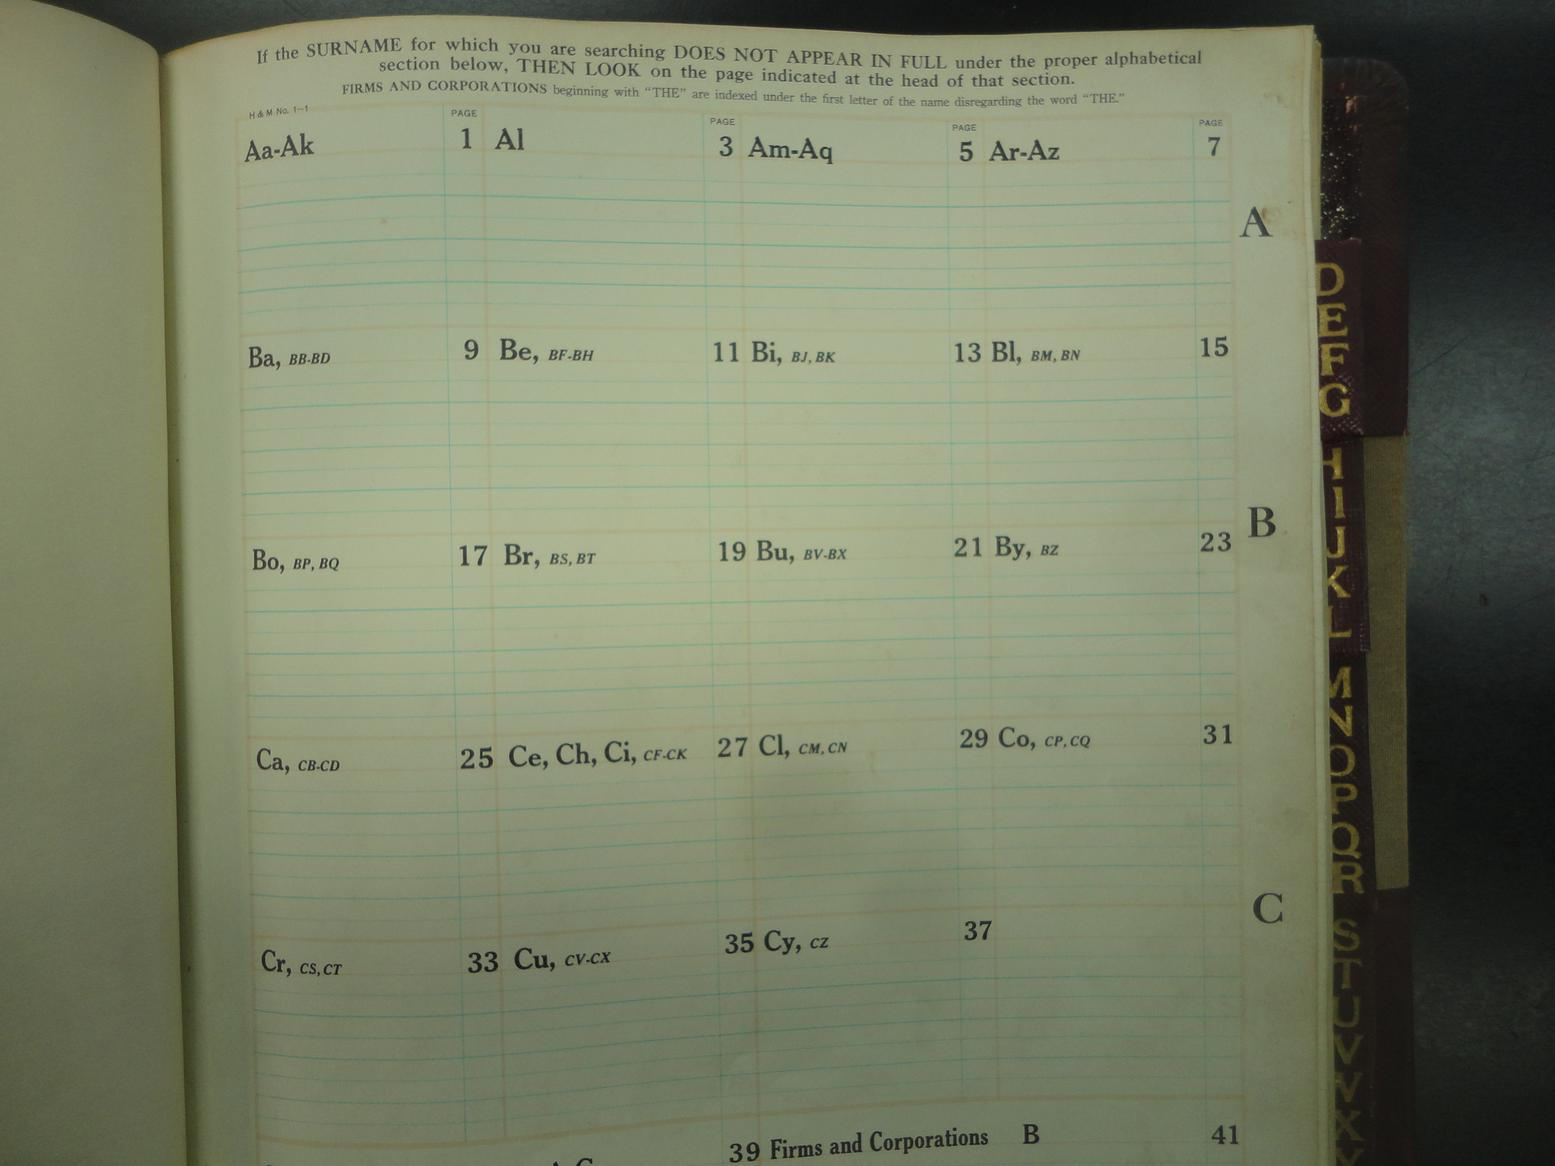 If the SURNAME for which you are searching DOES NOT APPEAR IN FULL under the proper alphabetical
section below, THEN LOOK on the page indicated at the head of that section.
FIRMS AND CORPORATIONS beginning with "THE" are indexed under the first letter of the name disregarding the word "THE."
H & M No. 1-1
PAGE PAGE PAGE PAGE
Aa-Ak 1 Al 3 Am-Aq 5 Ar-Az 7
A
Ba, BB-BD 9 Be, BF-BH 11 Bi, BJ, BK 13 Bl, BM, BN 15
B
Bo, BP, BQ 17 Br, BS, BT 19 Bu, BV-BX 21 By, BZ 23
Ca, CB-CD 25 Ce, Ch, Ci, CF-CK 27 Cl, CM, CN 29 Co, CP, CQ 31
C
Cr, CS, CT 33 Cu, CV-CX 35 Cy, CZ 37
39 Firms and Corporations B 41
D
E
F
G
H
I
J
K
L
M
N
O
P
Q
R
S
T
U
V
W
X